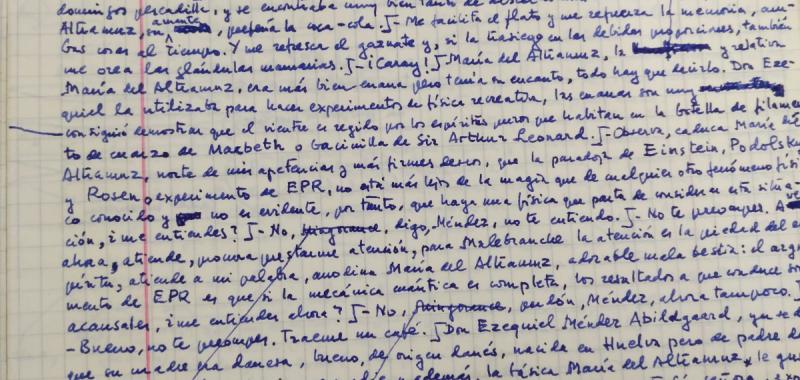 domingos pescadilla, y se encontraba muy bien
Altramuz, su amante, prefería la coca-cola. ∫- Me facilita el flato y me refuerza la memoria, am-
bas cosas al tiempo. Y me refresca el gaznate y, si la trasiego en las debidas proporciones, también
me orea las glándulas mamarias. ∫- ¡Caray! ∫- María del Altramuz, la y relativa
María del Altramuz, era más bien enana pero tenía su encanto, todo hay que decirlo. Don Eze-
quiel la utilizaba para hacer experimentos de física recreativa, las cuales son muy
consiguió demostrar que el vientre es regido por los espíritus puros que habitan en la botella de filamen-
to de cuarzo de Macbeth o bacinilla de Sir Arthur Leonard. ∫- Observa, caduca María del
Altramuz, norte de mis apetencias y más firmes deseos, que la paradoja de Einstein, Podolsky
y Rosen o experimento de EPR, no está más lejos de la magia que de cualquier otro fenómeno físi-
co conocido y no es evidente, por tanto, que haya una física que parta de considerar esta situa-
ción, ¿me entiendes? ∫- No, digo, Méndez, no te entiendo. ∫- No te preocupes. A ver
ahora, atiende, procura prestarme atención, para Malebranche la atención es la piedad del es-
píritu, atiende a mi palabra, María del Altramuz, adorable mala bestia: el argu-
mento de EPR es que si la mecánica cuántica es completa, los resultados a que conduce son
acausales, ¿me entiendes ahora? ∫- No, perdón, Méndez, ahora tampoco. ∫
- Bueno, no te preocupes. Tráeme un café. ∫ Don Ezequiel Méndez Abildgaard, ya se d
que su madre era danesa, bueno, de origen danés, nacida en Huelva pero de padre d
además, la básica María del Altramuz le gu